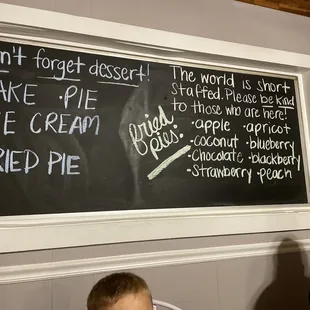 n't forget dessert!
AKE • PIE
E CREAM
RIED PIE
The world is short
staffed. Please be kind
to those who are here!
fried
pies:
• apple • apricot
• coconut • blueberry
• Chocolate • blackberry
• Strawberry • peach